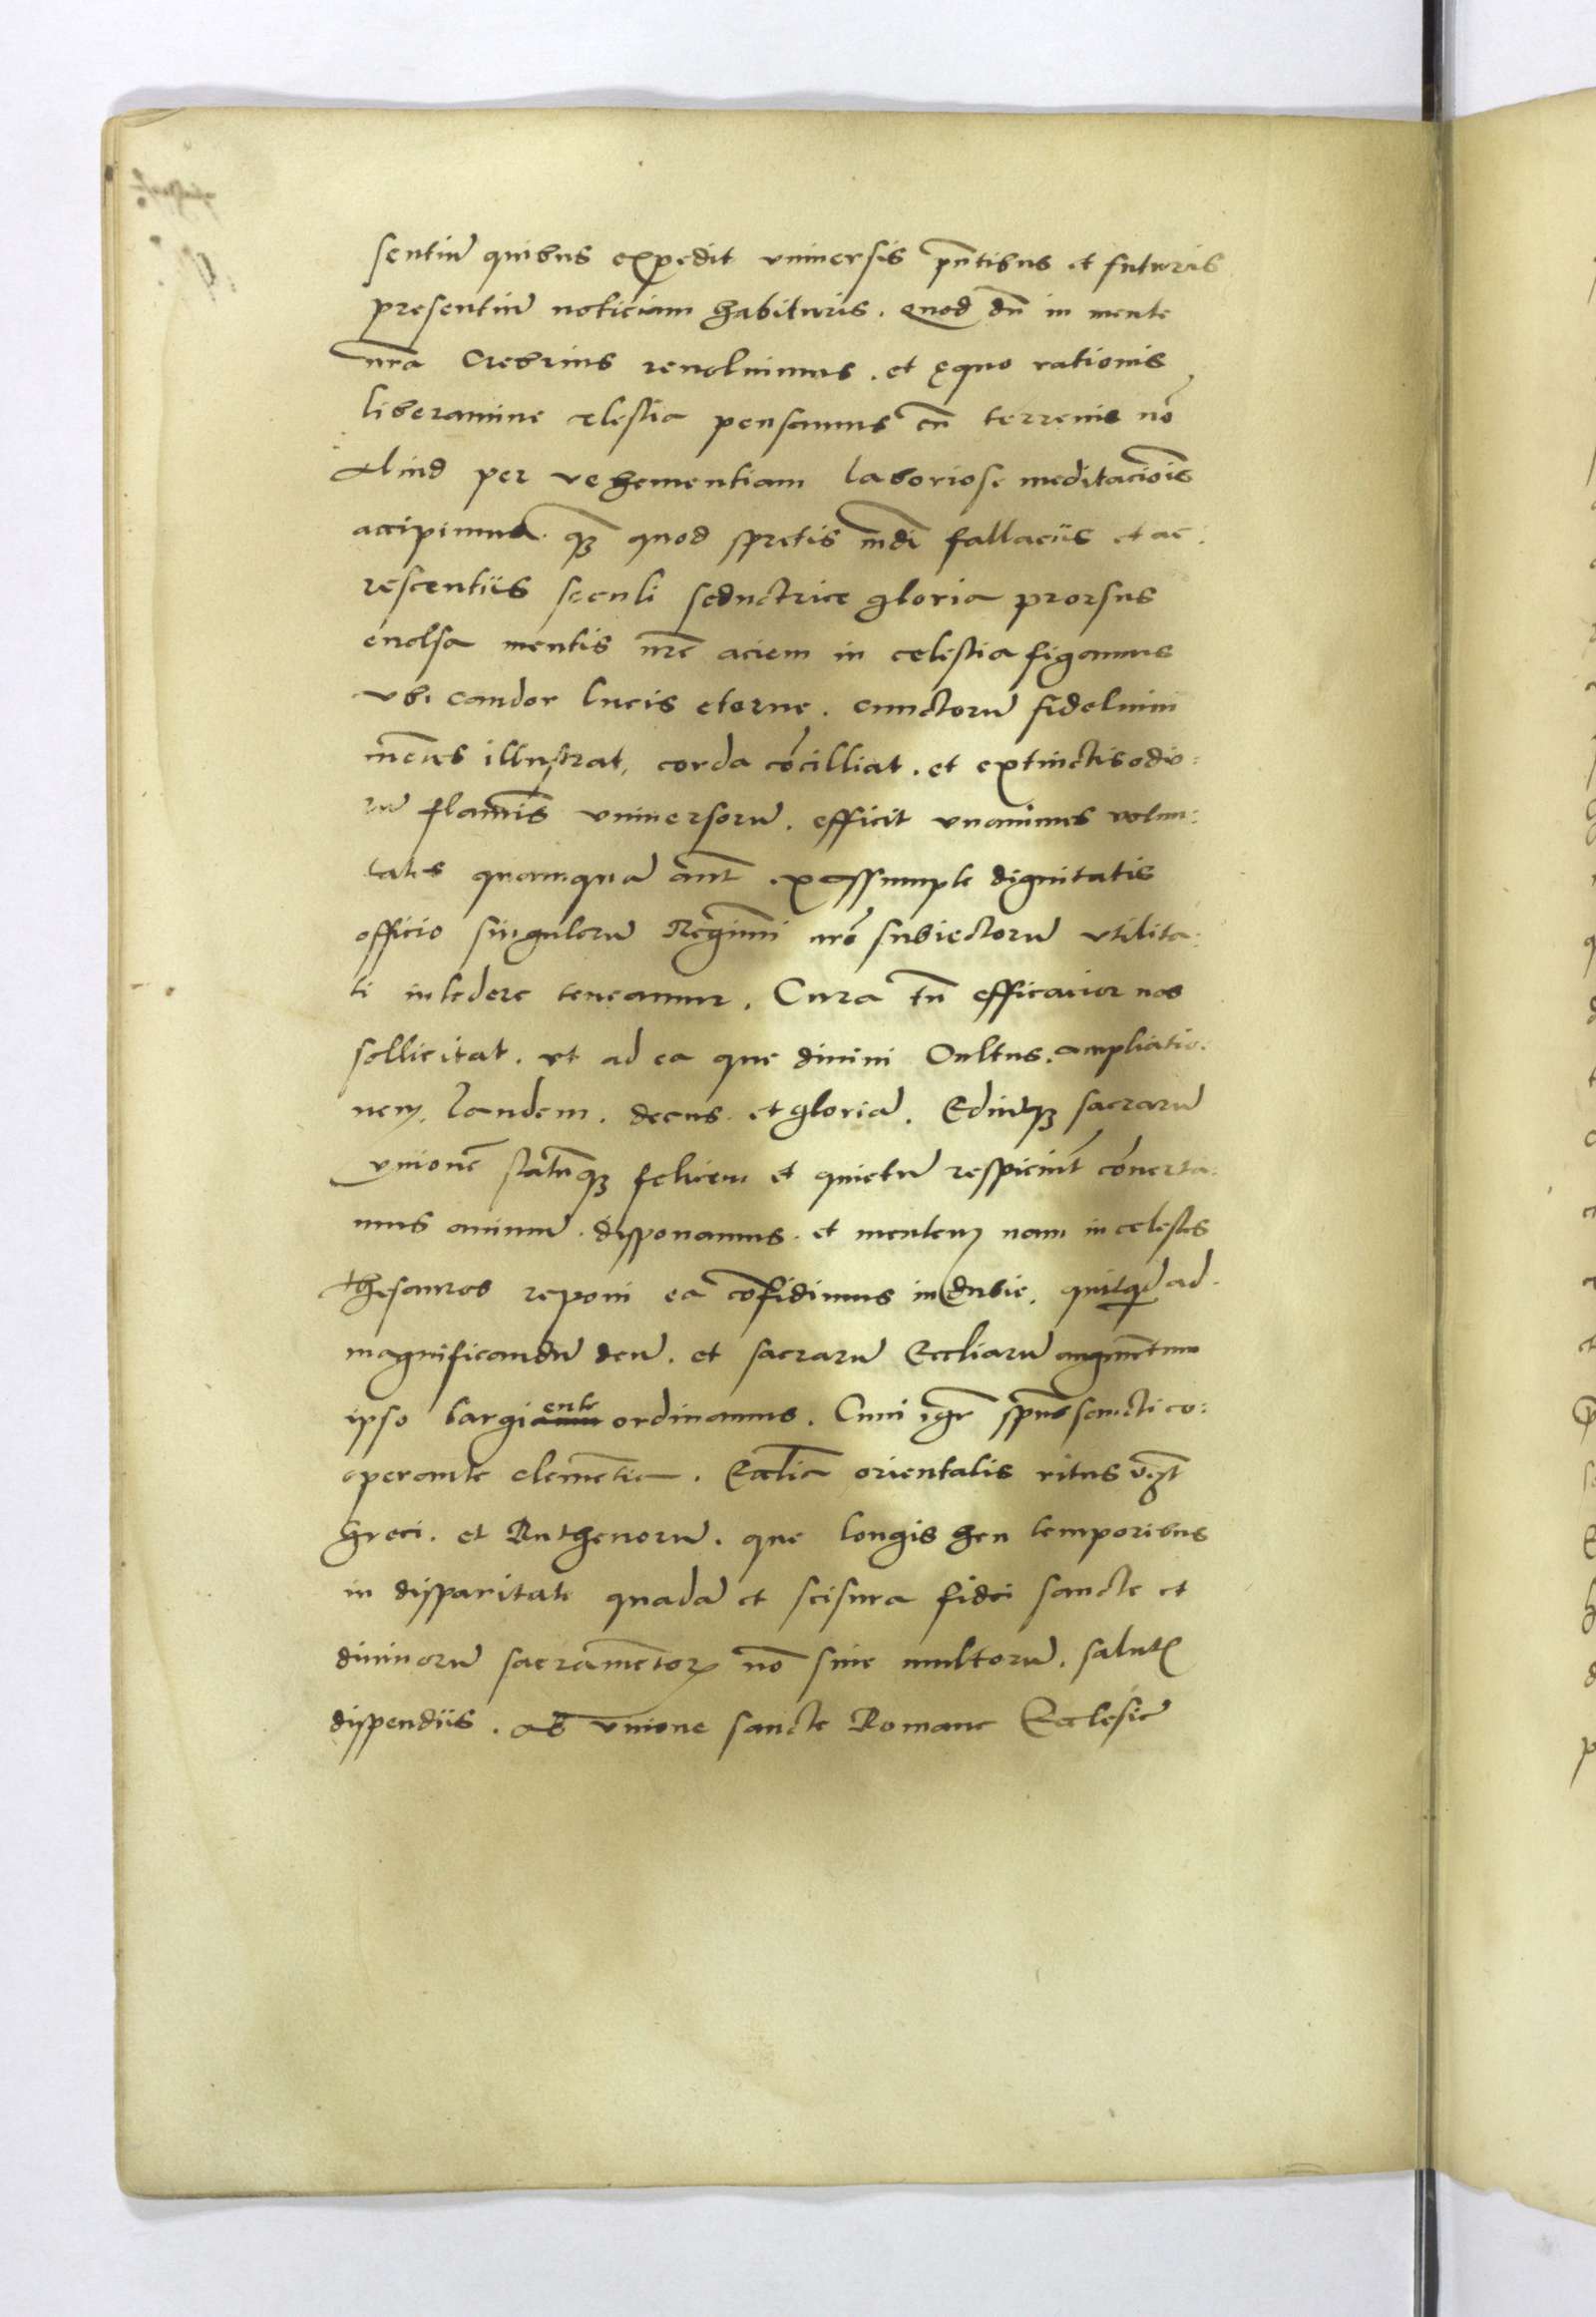 sentiū quibus expedit vniuersis pn̄tibus et futuris
presentiū noticiam habituris. Quod dū in mente
nrā Crebrius reuoluimus. et ęquo rationis
liberamine celestia pensamus cū terrenis nō
Aliud per vehementiam laboriose meditaciōis
accipimus qꝫ quod spretis mūdi fallaciis et ac:
rescentiis seculi seductrice gloria prorsus
euolsa mentis nr̄e aciem in celestia figamus
vbi candor lucis eterne. cunctorū fidelium
mētes illustrat, corda cōcilliat. et extinctis odio:
rū flamīs vniuersorū. efficit vnanimes volun:
tates quamquā aūt ex assumpte dignitatis
officio singulorū Regimīni nrō subiectorū vtilita:
ti intedere teneamur. Cura tn̄ efficacior nos
sollicitat. vt ad ea que diuini Cultus. ampliatio:
nem, laudem. decus et gloriā. Ediūqꝫ sacrarū
vnionē statūqꝫ felicem et quietū respiciūt cōuerta:
mus animū. disponamus. et mentem nam in celestes
thesauros reponi ea cōfidimus indubie, quitqͥd ad
magnificandū deū. et sacrarū Eccliarū augmētum
ipso largiente ordinamus. Cum igr̄ spūs sancti co:
operante clemētia. Ecclīa orientalis ritus vꝫt
Greci. et Ruthenorū. que longis heu temporibus
in disparitate quadā et scisura fidei sancte et
diuinorū sacramētorꝝ nō sine multorū. salutꝭ
dispendiis. ab vnione sancte Romane Ecclesie